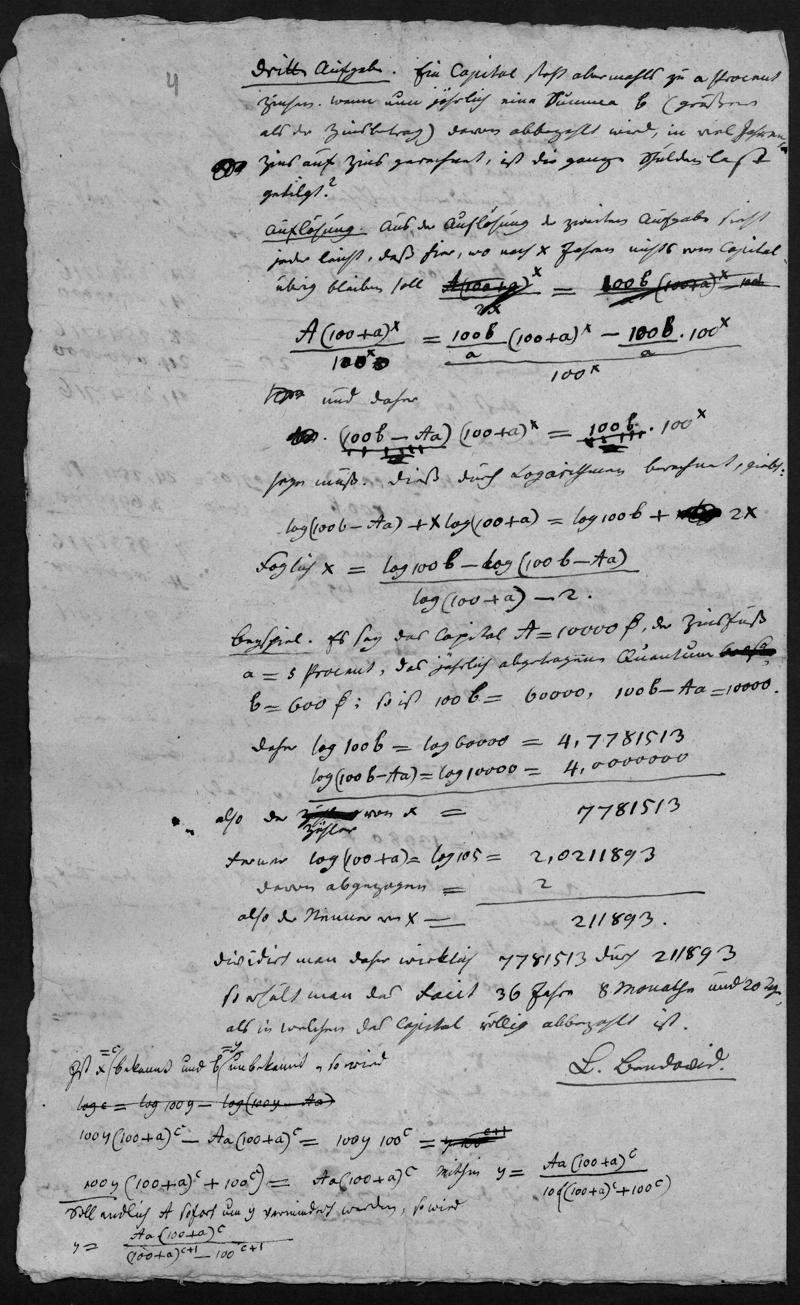 4
Dritte Aufgabe. Ein Capital steht abermahls zu a Procent
Zinsen. wenn nun jährlich eine Summe b (größer
als der Zinsbetrag) davon abbezahlt wird, in viel Jahren,
Zins auf Zins gerechnet, ist die ganze Schuldenlast
getilgt?
Auflösung. Aus der Auflösung der zweiten Aufgabe sieht
jeder leicht, daß hier, wo nach x Jahren nichts vom Capital
übrig bleiben soll A(100+a)^x = 100b (100+a)^x
A(100+a)^x / 100^x = (100b/a (100+a)^x − 100b/a · 100^x) / 100^x
und daher
(100b − Aa) (100+a)^x = 100b · 100^x
seyn muß. Dieß durch Logarithmen berechnet, giebt:
log(100b − Aa) + x log(100+a) = log 100b + 2x
Folglich x = (log 100b − log (100b − Aa)) / (log(100+a) − 2.)
Beyspiel. Es sey das Capital A = 10000 f, der Zinsfuß
a = 5 Procent, das jährlich abgetragene Quantum
b = 600 f; so ist 100b = 60000, 100b − Aa = 10000.
daher log 100b = log 60000 = 4,7781513
log(100b−Aa) = log 10000 = 4,0000000
also der Zähler von x = 7781513
Ferner log(100+a) = log 105 = 2,0211893
davon abgezogen = 2
also der Nenner von x = 211893.
dividirt man daher wirklich 7781513 durch 211893
so erhält man das Facit 36 Jahre 8 Monathe und 20 Tge,
als in welchen das Capital völlig abbezahlt ist.
L. Bendavid.
Ist x (=c) bekannt und b (=y) unbekannt, so wird
log c = log 100y − log(100y − Aa)
100y(100+a)^c − Aa(100+a)^c = 100y 100^c = y 100^c+1
100y ((100+a)^c + 100^c) = Aa(100+a)^c mithin y = Aa(100+a)^c / 100((100+a)^c + 100^c)
Soll endlich A sofort um y vermindert werden, so wird
y = Aa(100+a)^c / (100+a)^c+1 − 100^c+1